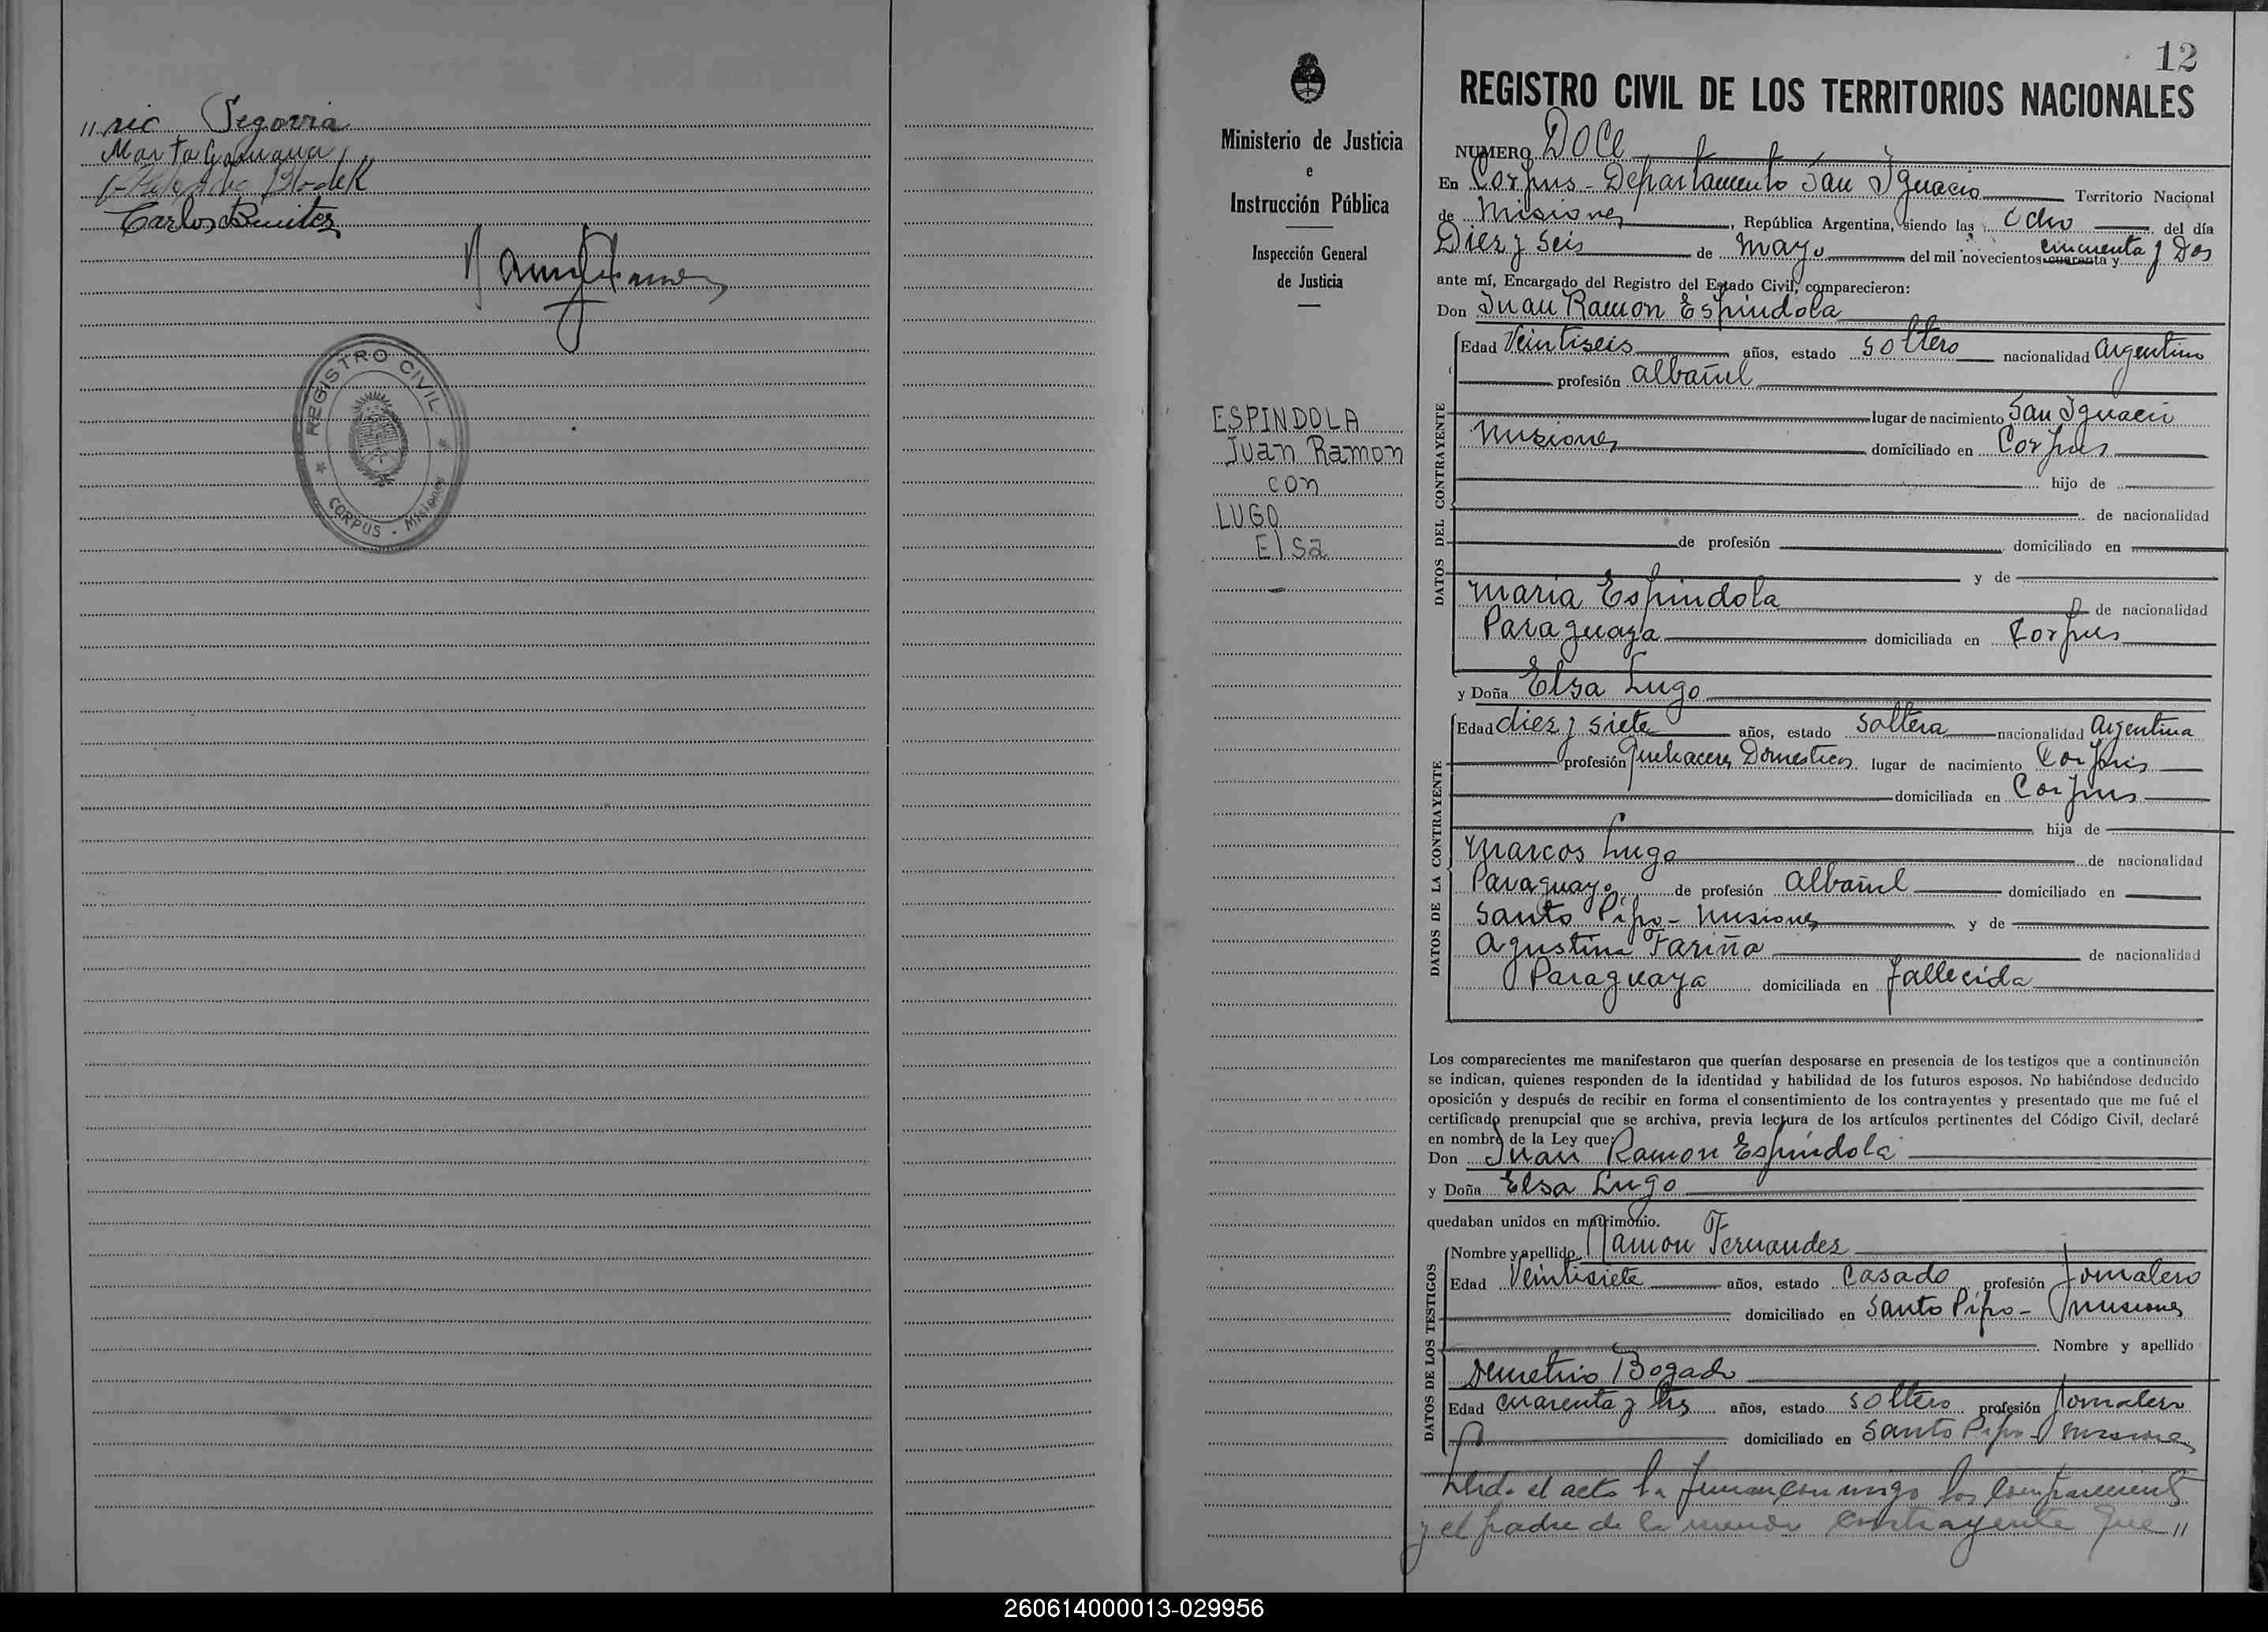 " ric Segovia
Marta
Blodek
Carlos Benitez
REGISTRO CIVIL
CORPUS - MISIONES
12
REGISTRO CIVIL DE LOS TERRITORIOS NACIONALES
Ministerio de Justicia
e
Instrucción Pública
Inspección General
de Justicia
ESPINDOLA
Juan Ramon
con
LUGO
Elsa
NUMERO Doce
En Corpus - Departamento San Ignacio Territorio Nacional
de Misiones, República Argentina, siendo las Ocho del día
Diez y seis de Mayo del mil novecientos cuarenta y cincuenta y Dos
ante mí, Encargado del Registro del Estado Civil, comparecieron:
Don Juan Ramon Espindola
DATOS DEL CONTRAYENTE
Edad Veintiseis años, estado soltero nacionalidad Argentino
profesión albañil
lugar de nacimiento San Ignacio
Misiones domiciliado en Corpus
hijo de
de nacionalidad
de profesión domiciliado en
y de
Maria Espindola de nacionalidad
Paraguaya domiciliada en Corpus
y Doña Elsa Lugo
DATOS DE LA CONTRAYENTE
Edad diez y siete años, estado soltera nacionalidad Argentina
profesión Quehaceres Domesticos lugar de nacimiento Corpus
domiciliada en Corpus
hija de
Marcos Lugo de nacionalidad
Paraguayo de profesión albañil domiciliado en
Santo Pipo - Misiones y de
Agustina Fariña de nacionalidad
Paraguaya domiciliada en fallecida
Los comparecientes me manifestaron que querían desposarse en presencia de los testigos que a continuación
se indican, quienes responden de la identidad y habilidad de los futuros esposos. No habiéndose deducido
oposición y después de recibir en forma el consentimiento de los contrayentes y presentado que me fué el
certificado prenupcial que se archiva, previa lectura de los artículos pertinentes del Código Civil, declaré
en nombre de la Ley que:
Don Juan Ramon Espindola
y Doña Elsa Lugo
quedaban unidos en matrimonio.
DATOS DE LOS TESTIGOS
Nombre y apellido Ramon Fernandez
Edad Veintisiete años, estado Casado profesión Jornalero
domiciliado en Santo Pipo - Misiones
Nombre y apellido
Demetrio Bogado
Edad cuarenta y tres años, estado soltero profesión Jornalero
domiciliado en Santo Pipo - Misiones
Leida el acta la firman conmigo los comparecientes
y el padre de la menor contrayente que "
260614000013-029956